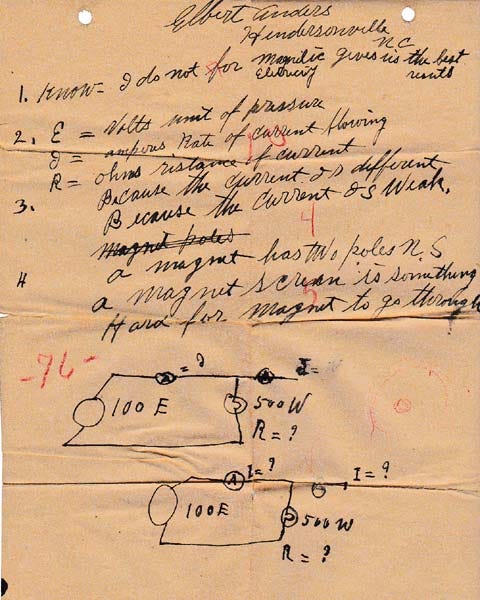 Elbert Anders
Hendersonville
NC
1. Know = I do not for magnetic gives is the best
Electricity results
2. E = Volts unit of pressure
I = ampers Rate of current flowing
R = ohms ristance of current
3. Because the current is different
Because the current is weak.
magnet poles
4
a magnet has two poles N.S
4 a magnet screan is something
5
Hard for magnet to go through
-76-
= I
I =
100 E
500 W
R = ?
I = ?
I = ?
100 E
500 W
R = ?